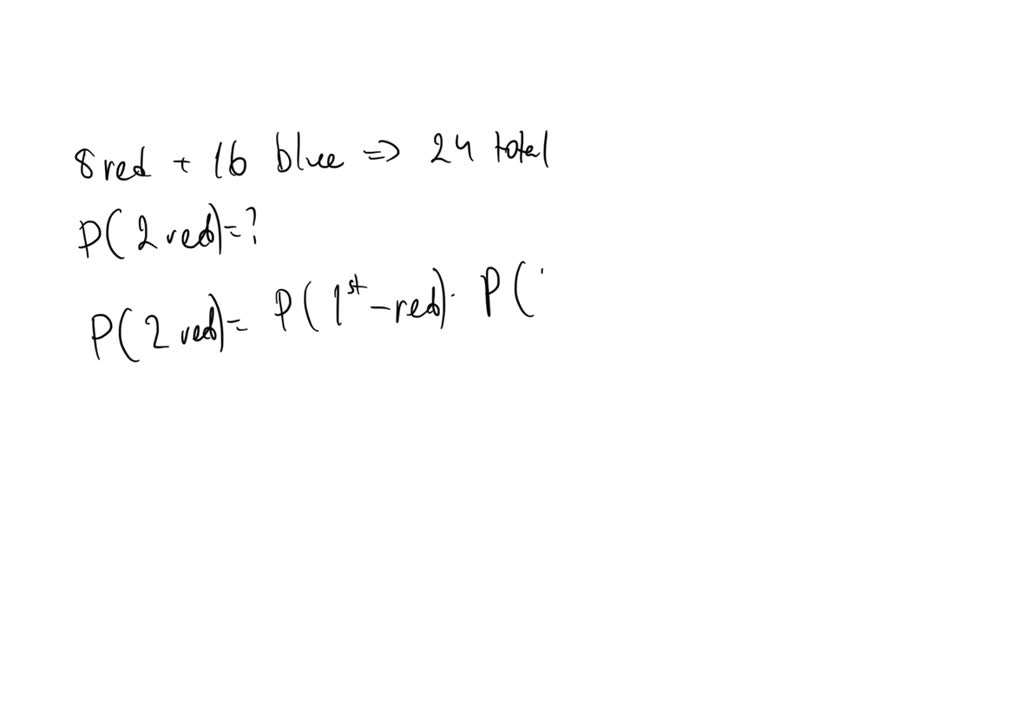 8 red + 16 blue => 24 total
P(2 red)=?
P(2 red)= P(1st-red)· P(